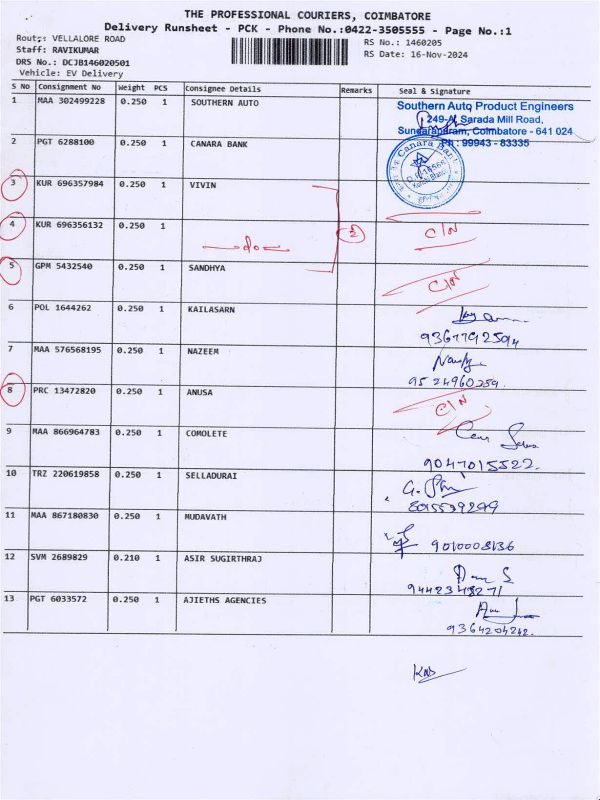 THE PROFESSIONAL COURIERS, COIMBATORE
Delivery Runsheet - PCK - Phone No.:0422-3505555 - Page No.:1
Route: VELLALORE ROAD RS No.: 1460205
Staff: RAVIKUMAR RS Date: 16-Nov-2024
DRS No.: DCJB146020501
Vehicle: EV Delivery
S No Consignment No Weight PCS Consignee Details Remarks Seal & Signature
1 MAA 302499228 0.250 1 SOUTHERN AUTO
Southern Auto Product Engineers
249-A, Sarada Mill Road,
Sundarapuram, Coimbatore - 641 024
Ph : 99943 - 83335
2 PGT 6288100 0.250 1 CANARA BANK
Canara Bank
3 KUR 696357984 0.250 1 VIVIN
4 KUR 696356132 0.250 1 -do- 2 C/N
5 GPM 5432540 0.250 1 SANDHYA C/N
6 POL 1644262 0.250 1 KAILASARN
9367792594
7 MAA 576568195 0.250 1 NAZEEM
9524960259
8 PRC 13472820 0.250 1 ANUSA C/N
9 MAA 866964783 0.250 1 COMOLETE
9047015522.
10 TRZ 220619858 0.250 1 SELLADURAI
11 MAA 867180830 0.250 1 MUDAVATH
9010008136
12 SVM 2689829 0.210 1 ASIR SUGIRTHRAJ
13 PGT 6033572 0.250 1 AJIETHS AGENCIES
9364204242.